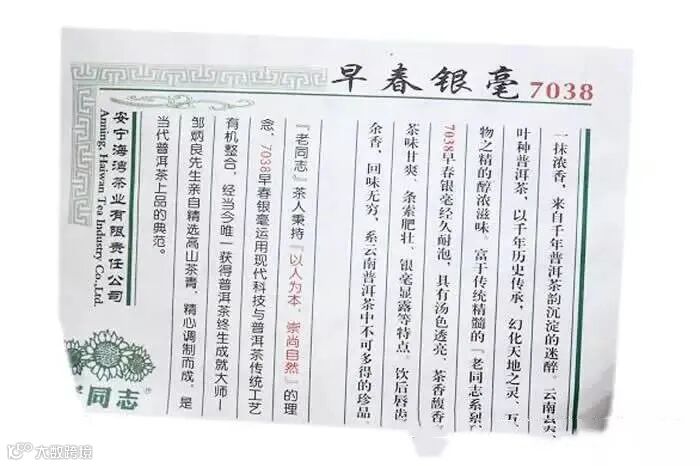 早春银毫7038
一抹浓香，来自千年普洱茶韵沉淀的迷醉。云南云
叶种普洱茶，以千年历史传承，幻化天地之灵、万
物之精的醇浓滋味。富于传统精髓的『老同志系列
7038早春银毫经久耐泡，具有汤色透亮、茶香馥香
茶味甘爽、条索肥壮、银毫显露等特点。饮后唇齿
余香，回味无穷，系云南普洱茶中不可多得的珍品。
『老同志』茶人秉持『以人为本，崇尚自然』的理
念，7038早春银毫运用现代科技与普洱茶传统工艺
有机整合，经当今唯一获得普洱茶终生成就大师—
邹炳良先生亲自精选高山茶青，精心调制而成，是
当代普洱茶上品的典范。
安宁海湾茶业有限责任公司
Anning, Haiwan Tea Industry Co.,Ltd.
同志®
大数跨境